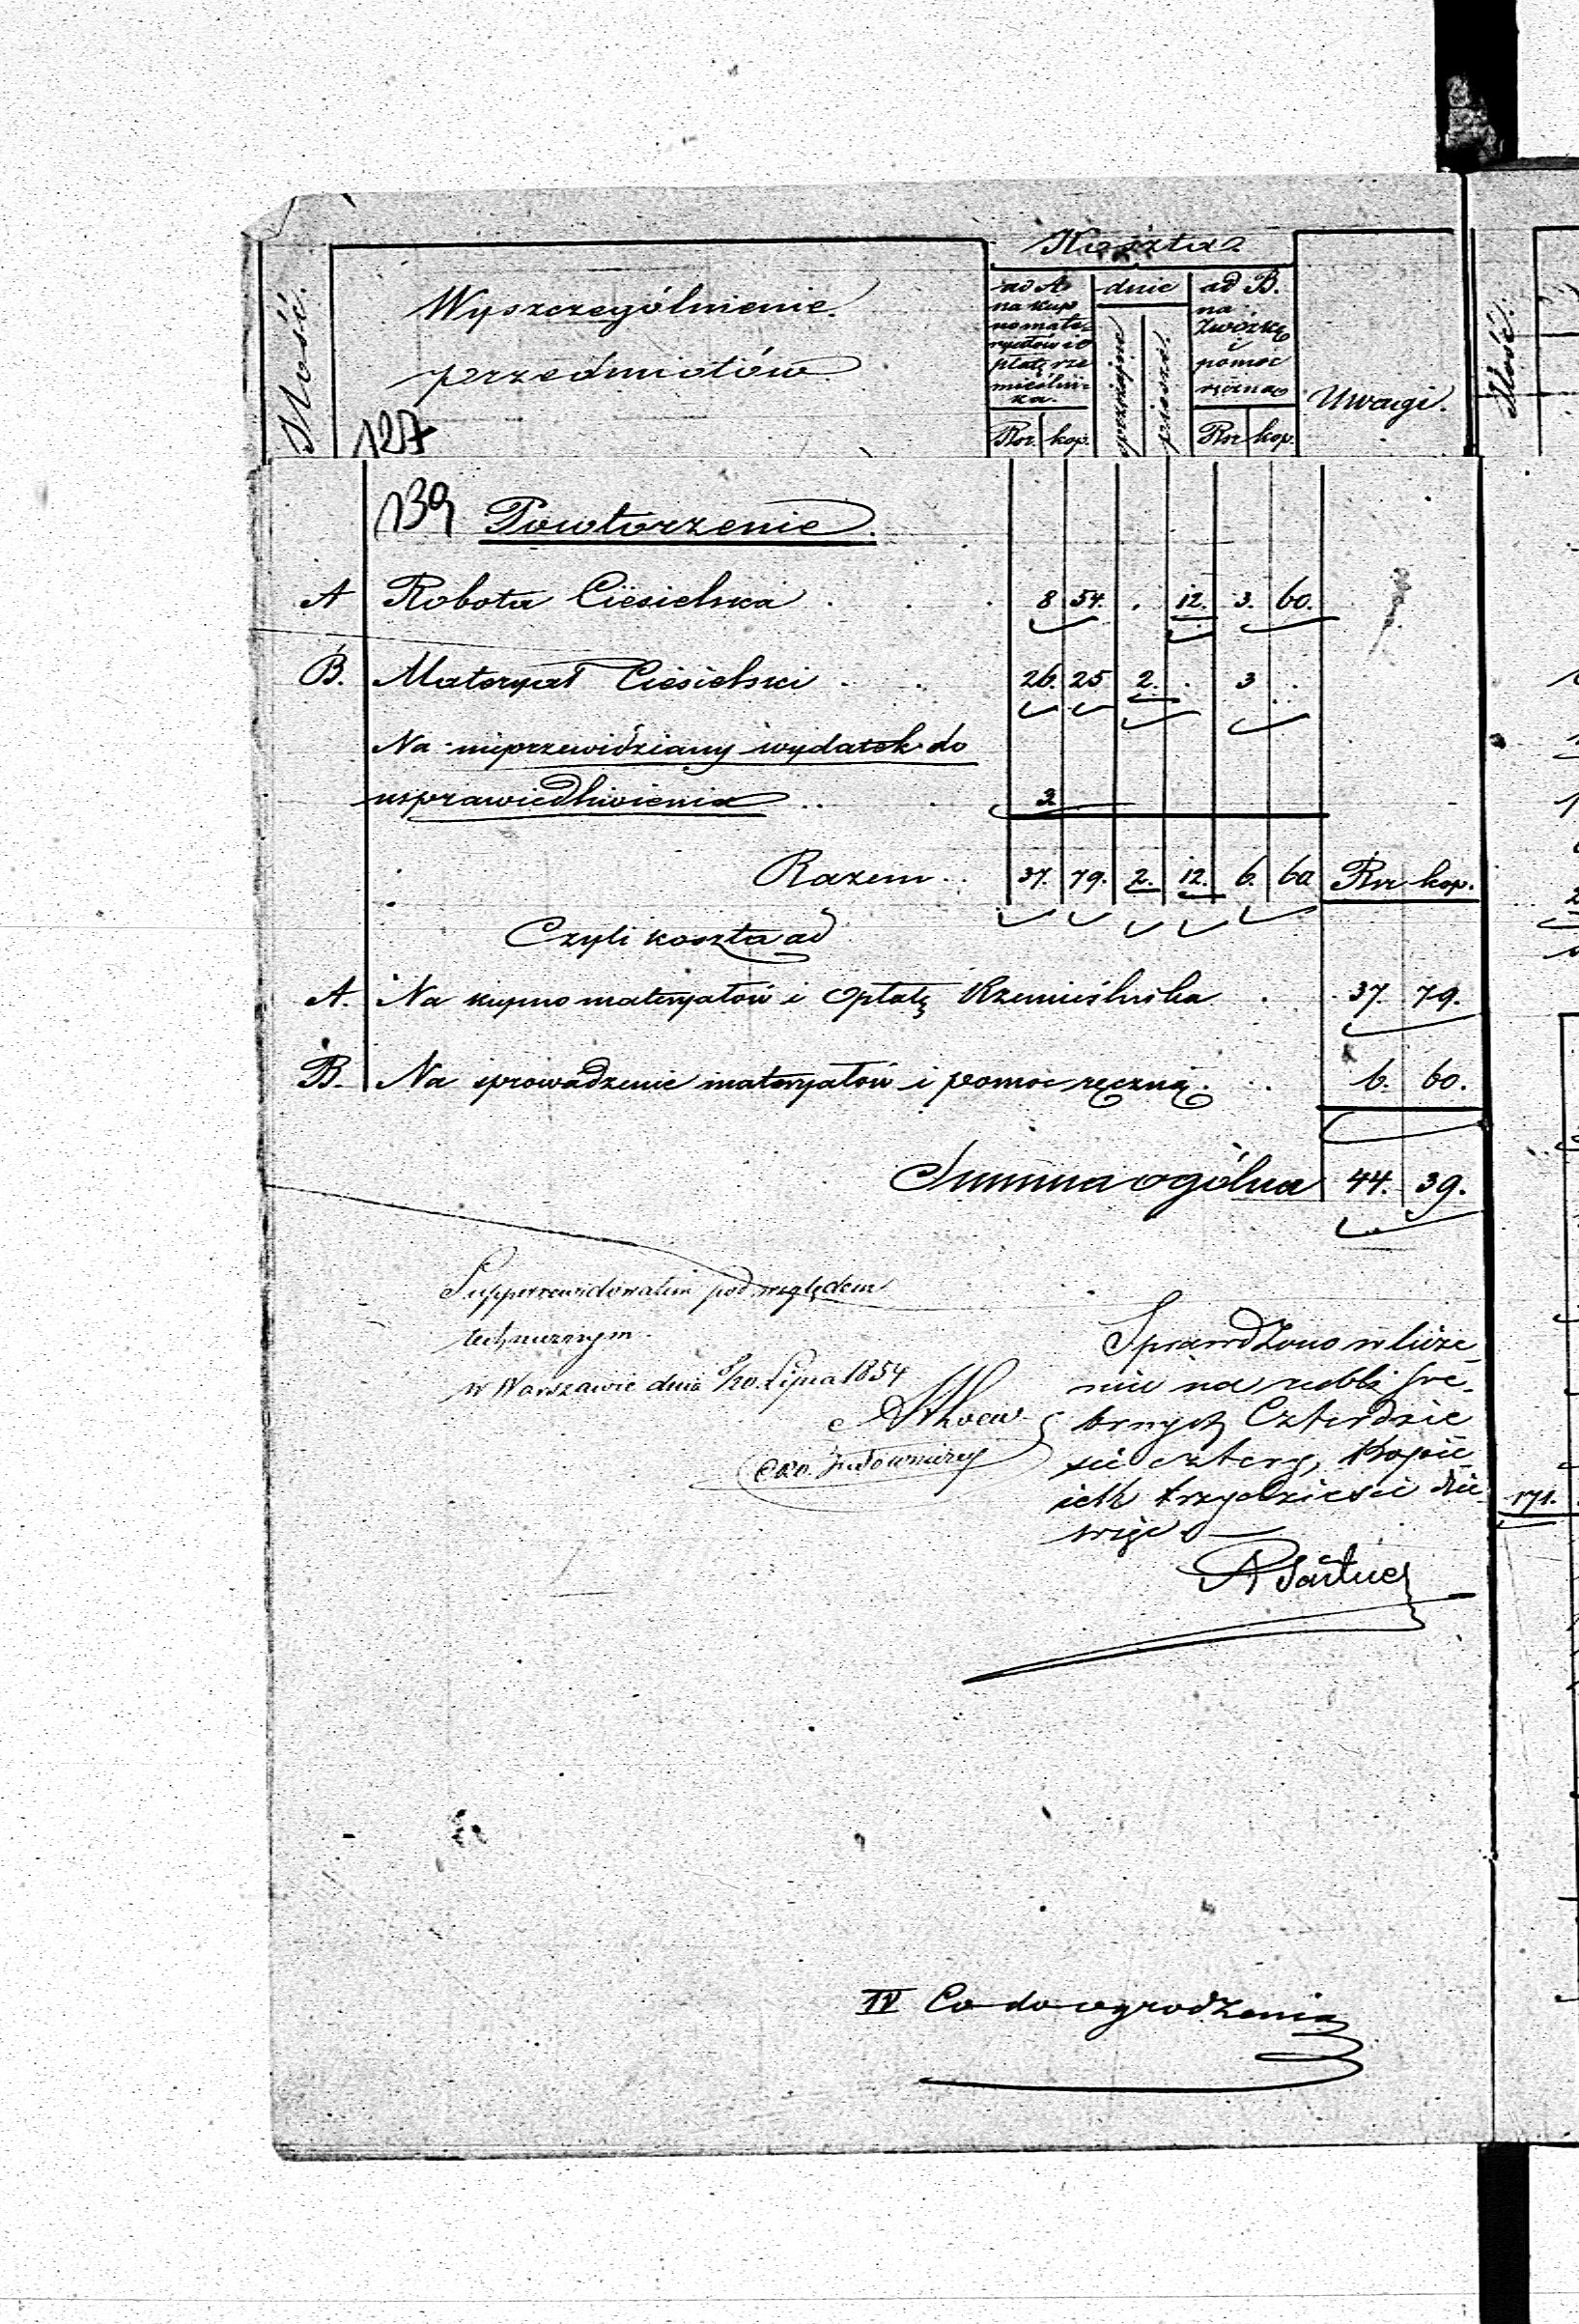 Ilość.
Wyszczególnienie
przedmiotów
Koszta
ad A
na kup
no mate
ryałów i o
płatę rze
mieślni
ka.
dnie
sprzężajne
piesze.
ad B.
na
zwózkę
i
pomoc
ręczną
Uwagi.
Ilość.
Rsr. kop. Rsr kop.
127
139 Powtórzenie.
A Robota Ciesielska . . . 8 54. . 12. 3. 60.
B. Materyał Ciesielski . . 26. 25 2. . 3 ..
Na nieprzewidziany wydatek do
usprawiedliwienia .. 3.
Razem .. 37. 79. 2. 12. 6. 60 Rsr kop.
Czyli koszta ad
A. Na kupno materyałów i opłatę Rzemieślnika . 37. 79.
B. Na sprowadzenie materyałów i pomoc ręczną . . 6. 60.
Summa ogólna 44. 39.
Supperrewidowałem pod względem
technicznym
w Warszawie dnia 8/20 Lipca 1854
Sprawdzono w licze-
niu na rubli sre-
brnych Czterdzie
ści cztery, Kopie
iek trzydzieści dzie
więć
171.
IV Co do ogrodzenia